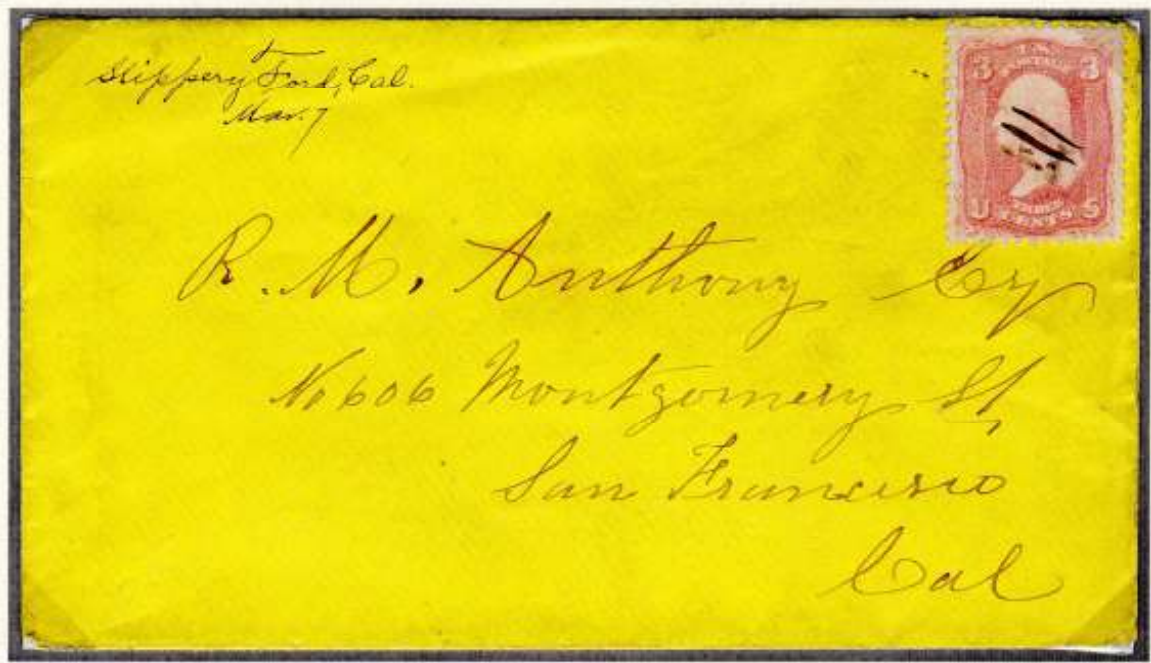 Slippery Ford, Cal.
Mar. 7
3 3
U CENTS S
R. M. Anthony Esq
No 606 Montgomery St
San Francisco
Cal